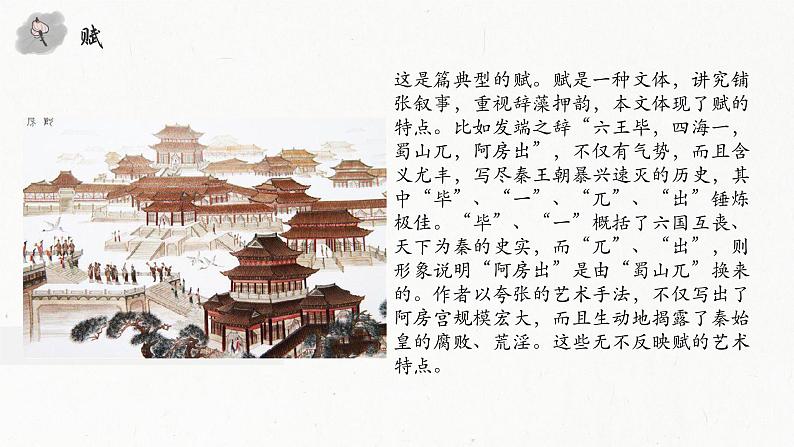 赋
这是篇典型的赋。赋是一种文体，讲究铺
张叙事，重视辞藻押韵，本文体现了赋的
特点。比如发端之辞“六王毕，四海一，
蜀山兀，阿房出”，不仅有气势，而且含
义尤丰，写尽秦王朝暴兴速灭的历史，其
中“毕”、“一”、“兀”、“出”锤炼
极佳。“毕”、“一”概括了六国互丧、
天下为秦的史实，而“兀”、“出”，则
形象说明“阿房出”是由“蜀山兀”换来
的。作者以夸张的艺术手法，不仅写出了
阿房宫规模宏大，而且生动地揭露了秦始
皇的腐败、荒淫。这些无不反映赋的艺术
特点。